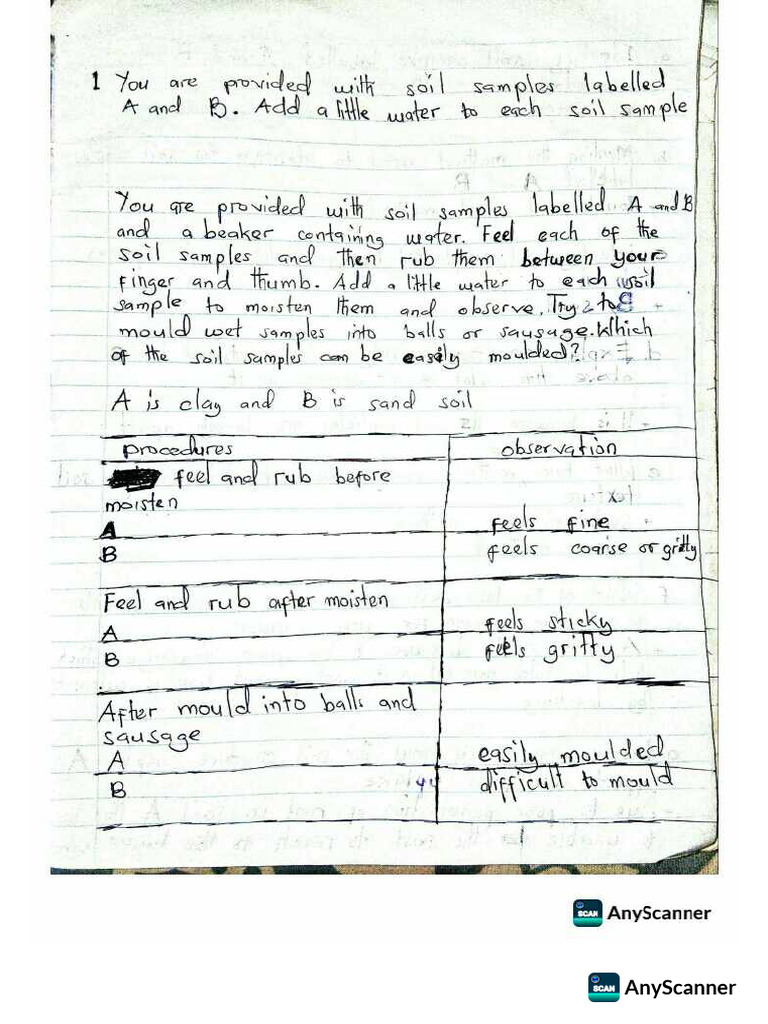 1 You are provided with soil samples labelled
A and B. Add a little water to each soil sample
You are provided with soil samples labelled A and B
and a beaker containing water. Feel each of the
soil samples and then rub them between your
finger and thumb. Add a little water to each soil
sample to moisten them and observe. Try to
mould wet samples into balls or sausage. Which
of the soil samples can be easily moulded?
A is clay and B is sand soil
procedures observation
feel and rub before
moisten
A feels fine
B feels coarse or gritty
Feel and rub after moisten
A feels sticky
B feels gritty
After mould into balls and
sausage
A easily moulded
B difficult to mould
SCAN AnyScanner
SCAN AnyScanner